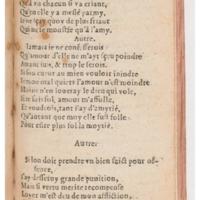 Qu'à chacun il va criant,
Qu'on elle y a meslé parmy,
Ie ne sçay quoy de plus friant
Que le monstre qu'à l'amy.
Autre.
Iamais ie ne confesserois
Qu'amour d'elle ne m'ayt sçeu poindre
Amant suis, & trop le serois.
Si son cueur au mien vouloit ioindre
mon mal quiers l'amour n'est moindre
Moins n'en loueray le dieu qui vole,
Ie suis fol, amour m'affolle,
Et voudrois, tant i'ay d'amytié,
Qu'autant que moy elle fust folle
Pour estre plus fol la moytié.
Autre.
Si lon doit prendre vn bien faict pour offence,
I'ay desseruy grande punition,
Mais si vertu merite recompense
Loyer m'est deu de mon affliction,